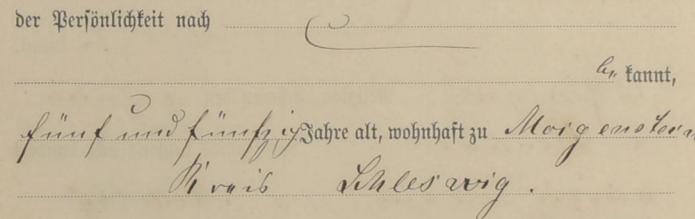 der Persönlichkeit nach
be kannt,
fünf und fünfzig Jahre alt, wohnhaft zu Morgenstern
Kreis Schleswig.